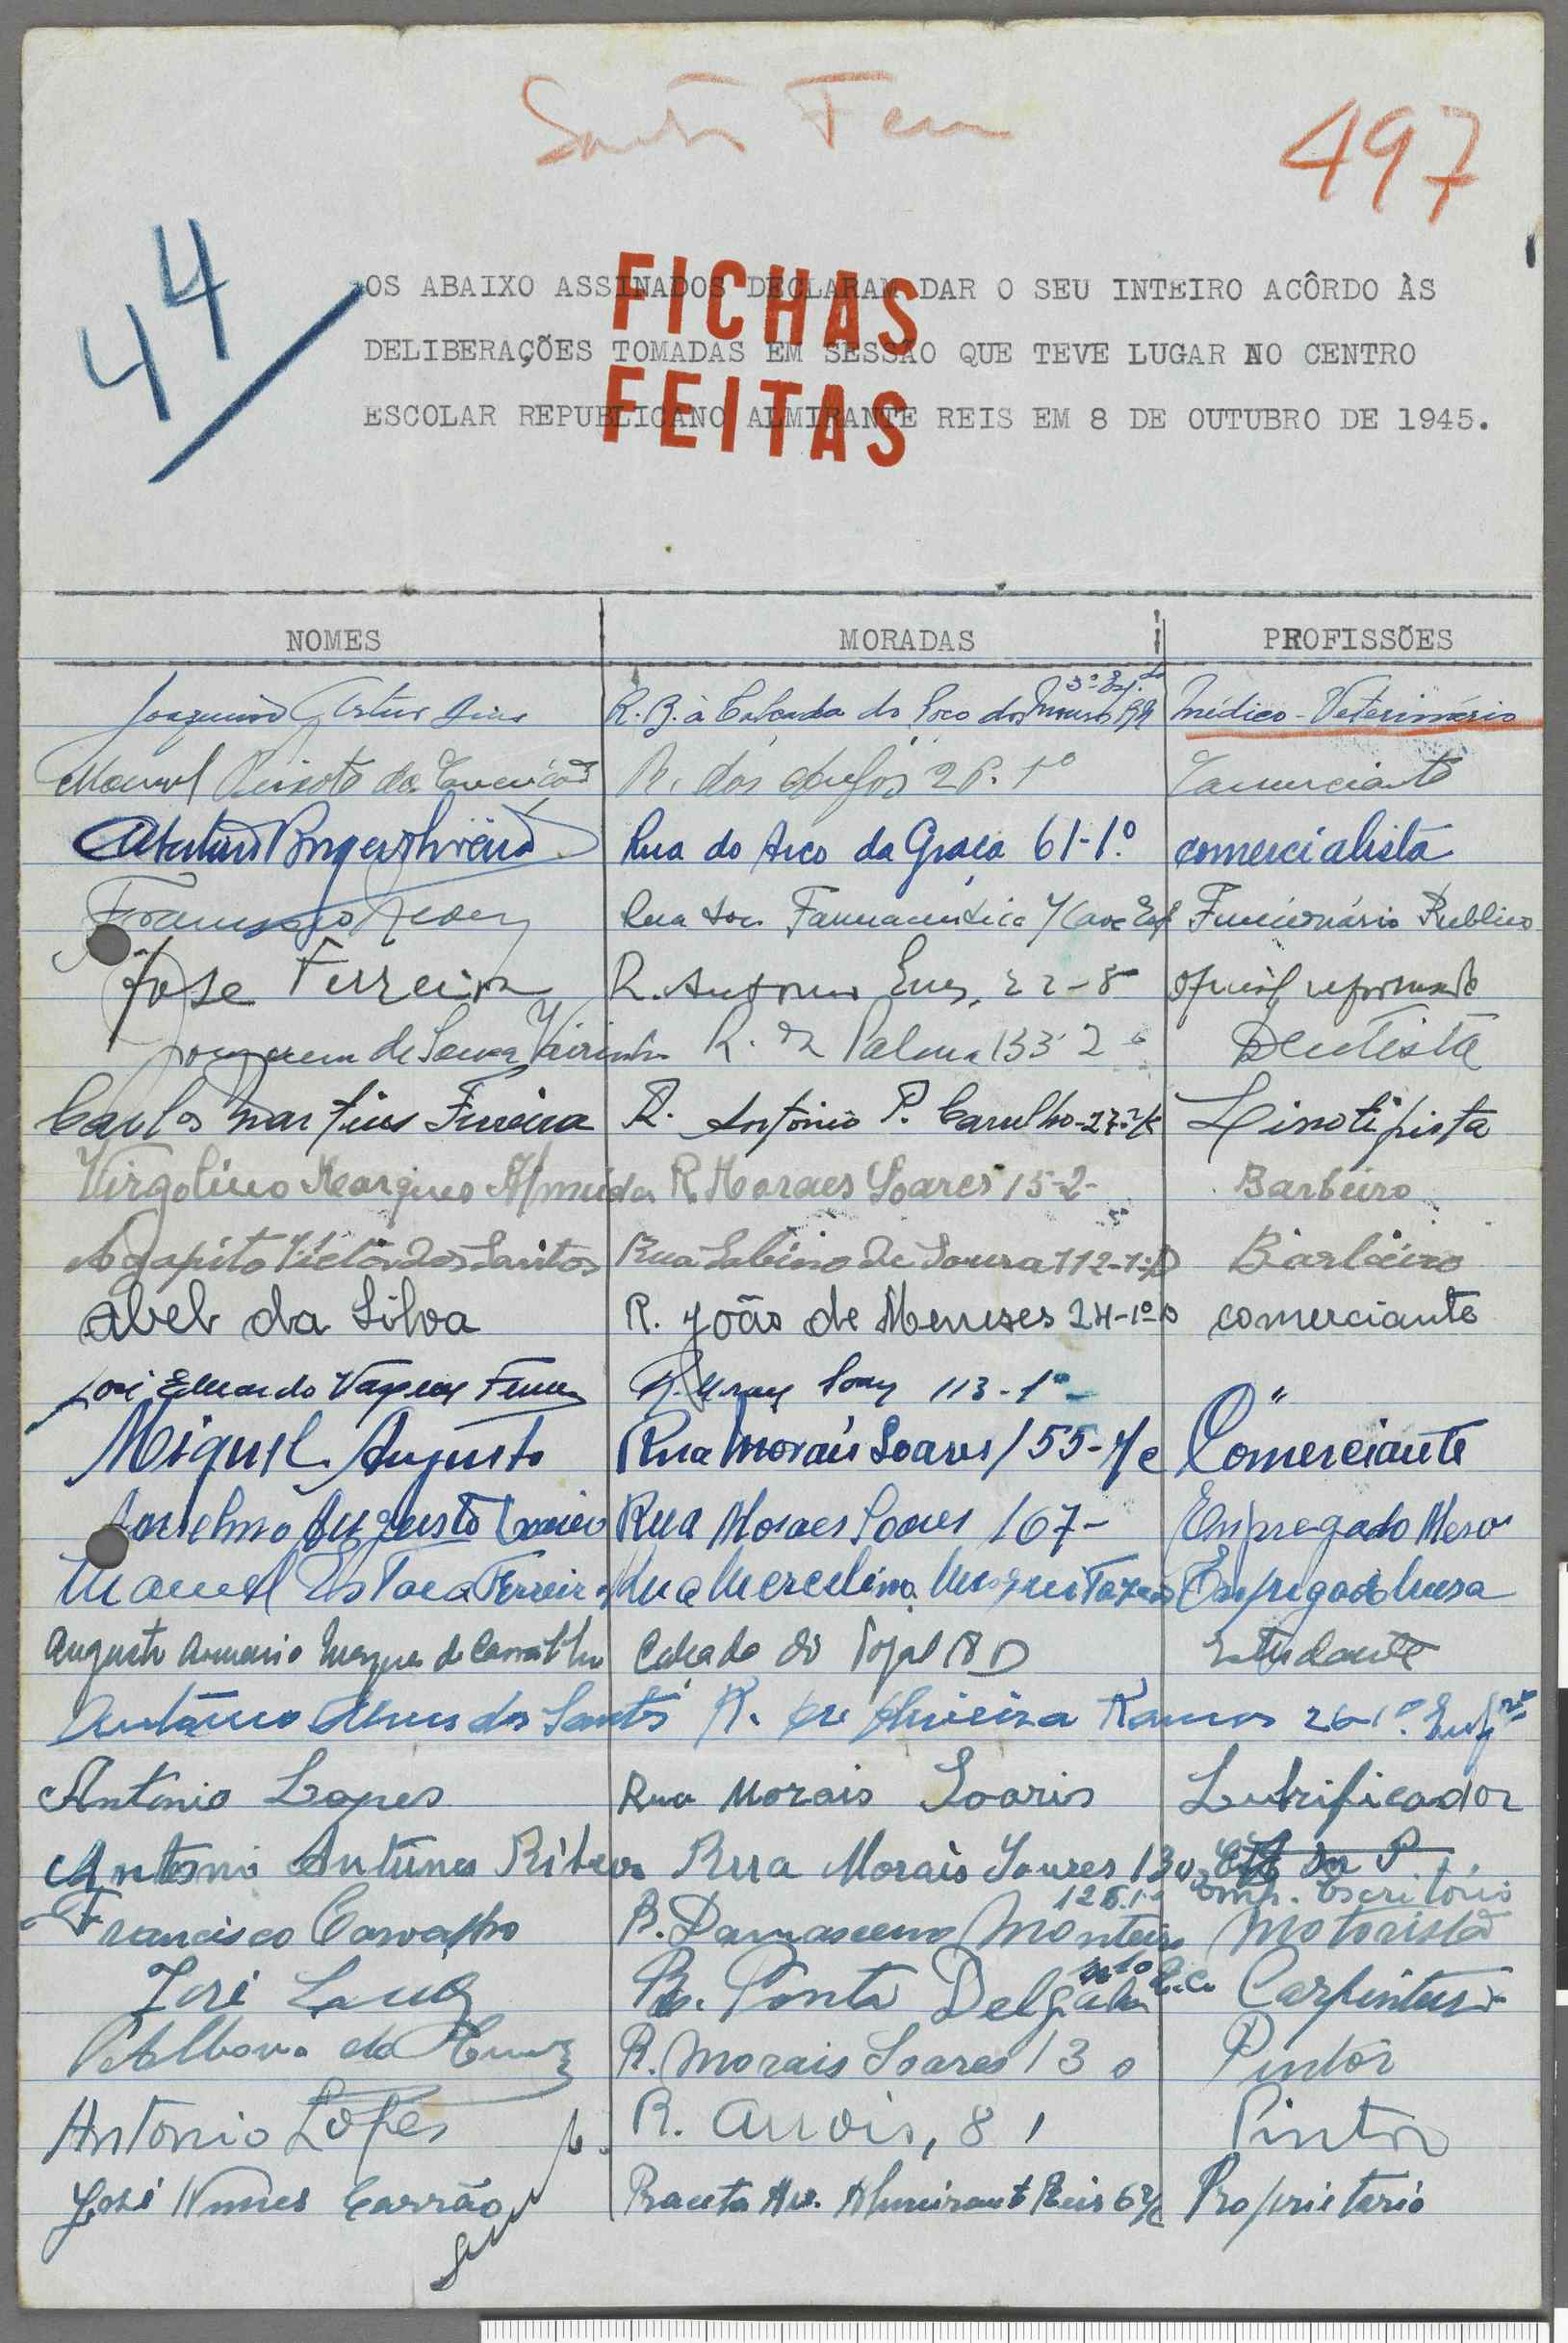 497
44
OS ABAIXO ASSINADOS DECLARAM DAR O SEU INTEIRO ACÔRDO ÀS
FICHAS
DELIBERAÇÕES TOMADAS EM SESSÃO QUE TEVE LUGAR NO CENTRO
FEITAS
ESCOLAR REPUBLICANO ALMIRANTE REIS EM 8 DE OUTUBRO DE 1945.
NOMES MORADAS PROFISSÕES
Joaquim Artur R. B. à Calçada do Poço dos Mouros Médico-Veterinário
Manuel Peixoto da R. dos 1º
Rua do Arco da Graça 61-1º comercialista
Francisco Rua Farmaceutica Funcionário Publico
José Ferreira R. Antonio Enes, 22-8 oficial reformado
de Sousa R. da Palma 133 2º Dentista
Carlos Martins Ferreira R. António P. Carrilho Linotipista
Virgolino Marques Almeida R. Moraes Soares 15-2- Barbeiro
Agapito Victor dos Santos Rua Sabino de Sousa 112-1º D Barbeiro
Abel da Silva R. João de Meneses 24-1º D comerciante
José Eduardo 113-1º "
Miguel Augusto Rua Morais Soares 155-r/c Comerciante
Anselmo Augusto Rua Moraes Soares 167- Empregado Mesa
Manuel Ferreira Rua Empregado Mesa
Augusto Armario Marques de Carvalho Calçada do Pojal D Estudante
António Alves dos Santos R. Oliveira Ramos 26-1º
Antonio Lopes Rua Morais Soaris Lubrificador
Antonio Antunes Ribeiro Rua Morais Soares 130
Emp. Escritório
Francisco Carvalho R. Damasceno Monteiro Motorista
José R. Ponta Delgada Carpinteiro
R. Morais Soares 130 Pintor
Antonio Lopes R. Arrois, 81 Pintor
José Nunes Carrão Praceta Av. Almirante Reis 6 r/c Proprietario